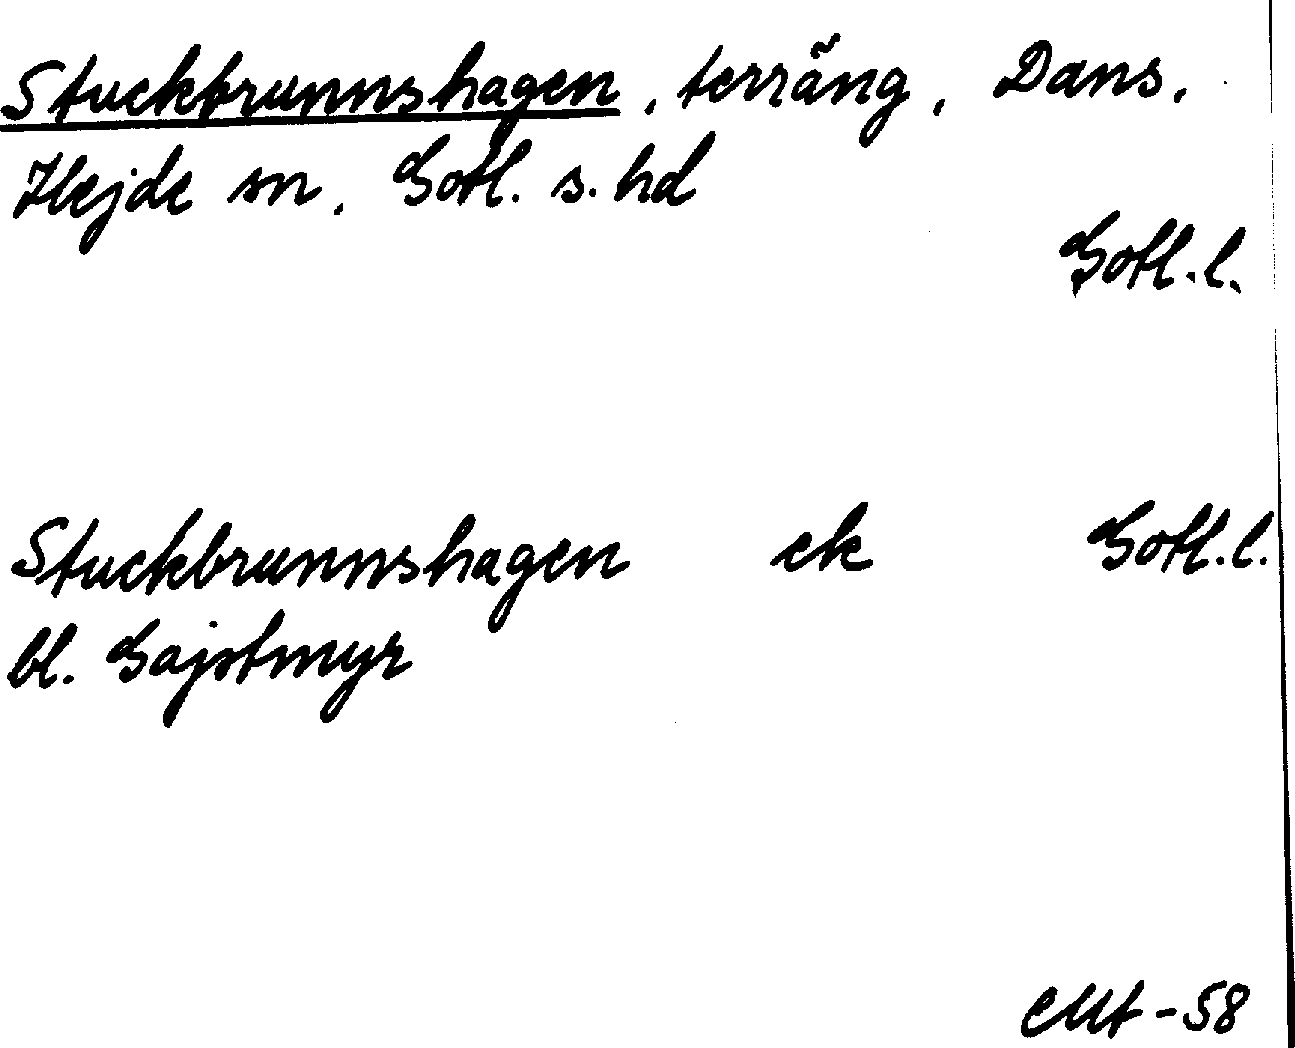 Stuckbrunnshagen, terräng, Dans,
Hejde sn, Gotl. s. hd
Gotl. l.
Stuckbrunnshagen ek Gotl. l.
bl. Gajstmyr
-58